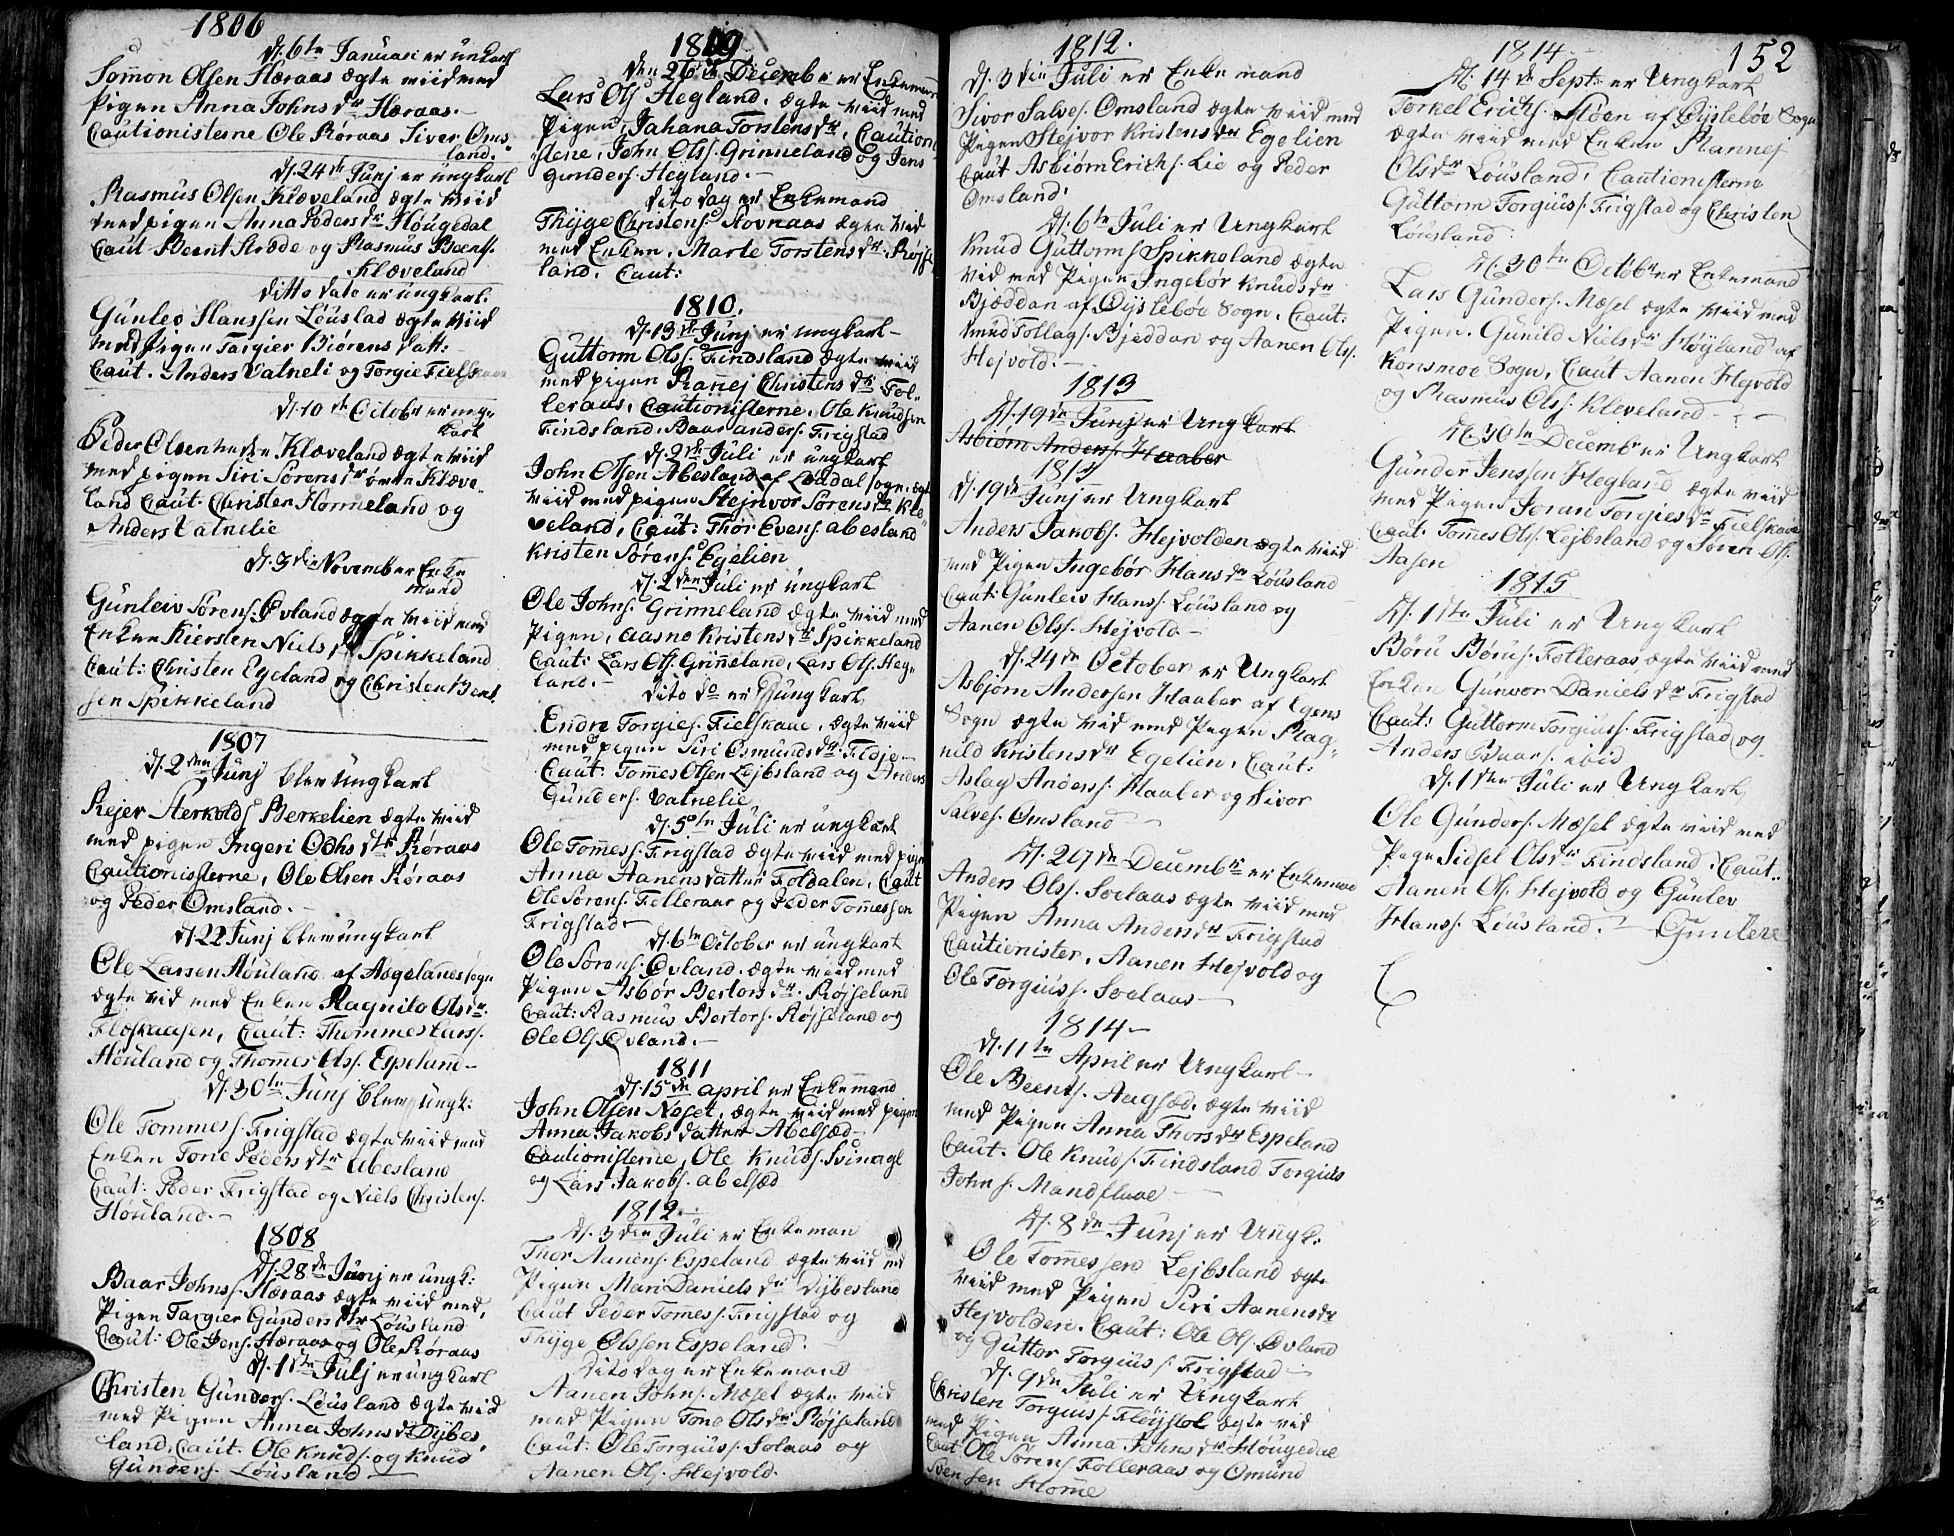 1806
d. 6te Januari er ünkarl
Sommon Olsen Høraas ægte wiid med
Pigen Anna Johnsdr Høraas.
Cautionisterne Ole Røraas Siver Oms-
land.
d. 24de Junj er üngkarl
Rasmus Olsen Klæveland ægte wiid
med pigen Anna Pedersdr Høugedal
Caut Beent Strøde og Rasmus Beents.
Klæveland
ditto dato er ungkarl:
Günleo Hanssen Löuslad ægte wiid
med pigen Targier Biørens datt:
Caut. Anders Vatneli og Torgie Fielskaae
d. 10de Octobr er ung-
karl
Peder Olsen Klæveland ægte wiid
med pigen Siri Sørensdr Klæve-
land Caut: Christen Homeland og
Anders Vatnelie
d. 3die November Enke
mand
Günleiv Sørens. Øvland ægte wiid med
Enken Kiersten Nielsdr Spikkeland
Caut: Christen Egeland og Christen Bent
sen Spikkeland
1807
d. 2den Junj blew ungkarl
Rejer Sterkolds Berkelien ægte wiid
med pigen Ingeri Odhsdtr Røraas
Cautionisterne, Ole Olsen Røraas
og Peder Omsland.
d. 22 Junj blew ungkarl
Ole Larsen Høuland af Aagelands sogn
ægte wid med Enken Ragnild Olsdr:
Fløskaasen, Caut: Thommes Larss.
Høuland og Thomes Olss. Espeland
d. 30te Junj blew üngk:
Ole Tommess. Frigstad ægte wiid med
Enken Tone Pedersdtr Abesland
Caut: Peder Frigstad og Niels Christens.
Høuland.
1808
d. 28de Junj er ungk:
Baar Johnss. Høraas ægte wiid med
Pigen Targier Gündersdtr Løusland
Caut: Ole Jens. Høraas og Ole Røraas
d. 1ste Julj er ungkarl
Christen Günders. Løusland ægte wiid
med Pigen Anna Johnsdr Dybes-
land, Caut: Ole Knuds. og Knud
Günders. Løusland
1809
den 26de Decembr er Enkemand
Lars Ols. Hegland. ægte wiid med
Pigen, Johana Torstensdr. Caution-
stene, John Olss. Grinneland og Jens
gunders. Hegland.
dito dag er Enkemand
Thyge Christens. Rovnaas ægte wed
med Enken, Marte Torstensdr. Røjse-
land. Caut:
1810.
d. 13de Junj er ungkarl
Güttorm Olss. Findsland ægte wiid
med pigen Rannej Christensdr Fol-
leraas, Cautionisterne, Ole Knudsen
Findsland, Baar anders. Frigstad
d. 2de Juli er ungkarl
John Olsen Abesland af Laudal sogn, ægte
wiid med pigen Stejnvor Sorensdr Kle-
veland, Caut: Thor Evens. abesland
Kristen Sørens. Egelien
d. 2den Juli er üngkarl
Ole Johns. Grinneland ægte wiid med
Pigen, aasno Kristensdr Spikkeland
Caut: Lars Ols. Grinneland, Lars Ols. Heg-
land.
dito do er ungkarl
Endre Torgies. Fielskaae, ægte wiid
med pigen Siri Osmundsdr. Fidje
Caut: Tomes Olsen Lejbsland og Anders
Günders. Vatnelie
d. 5te Juli er üngkarl
Ole Tomess. Frigstad ægte wiid med pigen
Anna Aanensdatter Foldalen, Caut
Ole Sørens. Folleraas og Peder Tommessen
Frigstad
d. 6te October er üngkarl
Ole Sørens. Øvland. ægte wiid med
Pigen Asbør Bertorsdr. Røjseland
Caut: Rasmus Bertors. Røjseland og
Ole Ols. Øvland.
1811
d. 15de april er Enkemand
John Olsen Noset, ægte wiid med pigen
Anna Jakobsdatter Abelsæd
Cautionisterne, Ole Knuds. Svinagl
og Lars Jakobs. abelsæd
1812
d. 3die Juli er Enkeman
Thor Aanens. Espeland ægte wiid med
Pigen Mari Danielsdr Dybesland
Caut Peder Tomess. Frigstad og
Thyge Olssen Espeland.
Dito dag er Enkemand
Aanen Johns. Mæsel ægte wiid
med Pigen Tone Olsdr Røjseland
Caut: Ole Torgiuss. Solaas og
Aanen Ols. Hejvold.
1812.
d. 3die Juli er Enkemand
Sivor Salves. Omsland ægte wiid med
Pigen Stejvor Kristensdr Egelien
Caut Asbiørn Erichs. Lie og Peder
Omsland.
d. 6te Juli er Ungkarl
Knud Güttorms. Spikkeland ægte
wid med Pigen Ingebør Knudsdr
Bjæddan af Øyslebøe Sogn. Caut:
Knud Tollags. Bjeddan og Aanen Ols.
Hejvold.
1813
d. 19de Junj er Ungkarl
Asbiørn Anders. Haaber
1813
d. 19de Junj er Ungkarl
Anders Jakobs. Hejvolden ægte wiid
med Pigen Ingebør Hansdr Løusland
Caut: Günleiv Hanss. Løusland og
Aanen Olss. Hejvold
d. 24de October er Ungkarl
Asbjørn Andersen Haaber af Egens
Sogn ægte wiid med Pigen Rag-
nild Kristensdr Egelien. Caut:
Aslag Anders. Haaber og Sivor
Salves. Omsland
d. 29de Decembr er Enkemand
Anders Olss. Soelaas ægte wiid med
Pigen Anna Andersdr Frigstad
Cautionister, Aanen Hejvold og
Ole Torgiuss. Soelaas
1814
d. 11te April er Ungkarl
Ole Beents. Aagsæd. ægte wiid
med Pigen Anna Thorsdr Espeland
Caut. Ole Knuds. Findsland Torgius
Johns. Mandflaae
d. 8de Junj er Ungk:
Ole Tomessen Lejbsland ægte
wiid med Pigen Siri Aanensdr
Hejvolden. Caut: Ole Ols. Øvland
og Güttor Torgius s. Frigstad
d. 9de Juli er Ungkarl
Christen Torgius s. Fløystøl ægte wid
med Pigen Asma Johnsdr Høugedal
Caut Ole Sørens. Folleraas og Omund
Svensen Home
1814
152
d. 14de Septr er Ungkarl
Torkel Erichs. Støen af Øyslebøe Sogn
ægte wiid med Enken Rannej
Olsdr Løusland. Cautionisterne
Güttorm Torgius s. Frigstad og Christen
Løusland
d. 30te Octobr er Enkemand
Lars Günders. Mæsel ægte wiid med
Pigen. Gunild Nielsdr Høyland af
Konsmoe Sogn, Caut Aanen Hejvold
og Rasmus Olss. Kleveland
d. 30te Decembr er Ungkarl
Günder Jenssen Hegland ægte wiid
med Pigen Joran Torgiesdr Fielskaae
Caut. Tommes Ols. Lejbsland og Søren Ols.
Aasen
1815
d. 1ste Juli er Ungkarl
Børu Børus. Folleraas ægte wiid med
Enken Günvor Danielsdr Frigstad
Caut: Güttorm Torgiuss. Frigstad og
Anders Baars. ibid
d. 1ste Juli er Ungkarl
Ole Günders. Mæsel ægte wiid med
Pigen Sidsel Olsdr Findsland. Caut.
Aanen Ols. Hejvold og Günlev
Hanss. Løusland.